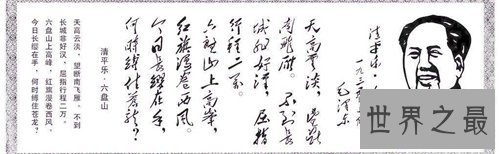 清平乐·
一九三
毛泽东
天高云淡 望断
南飞雁 不到长
城非好汉 屈指
行程二万
六盘山上高峰
红旗漫卷西风
今日长缨在手
何时缚住苍龙
清平乐·六盘山
天高云淡，望断南飞雁。不到
长城非好汉，屈指行程二万。
六盘山上高峰，红旗漫卷西风。
今日长缨在手，何时缚住苍龙？
世界之最